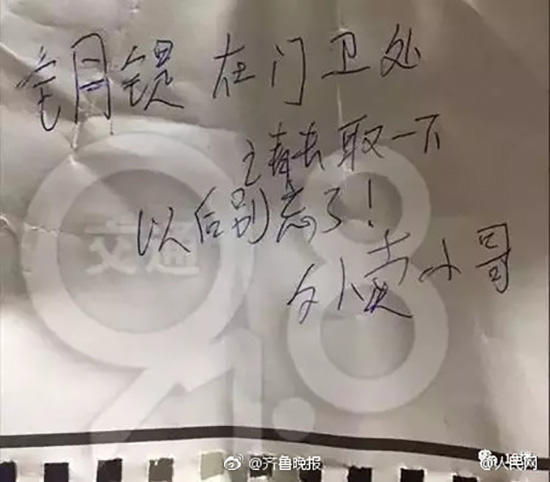 钥匙在门卫处
请去取一下
以后别忘了!
外卖小哥
交通
91.8
@齐鲁晚报
@人民网